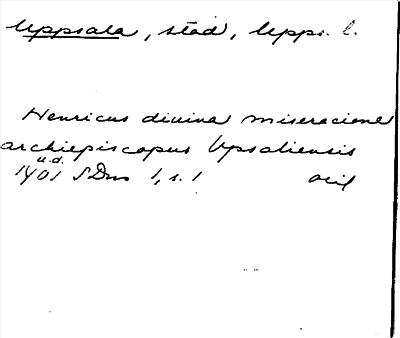 Uppsala, stad, Upps. l.
Henricus diuina miseracione
archiepiscopus Vpsaliensis
u.d.
1401 SDns 1, s. 1 avil